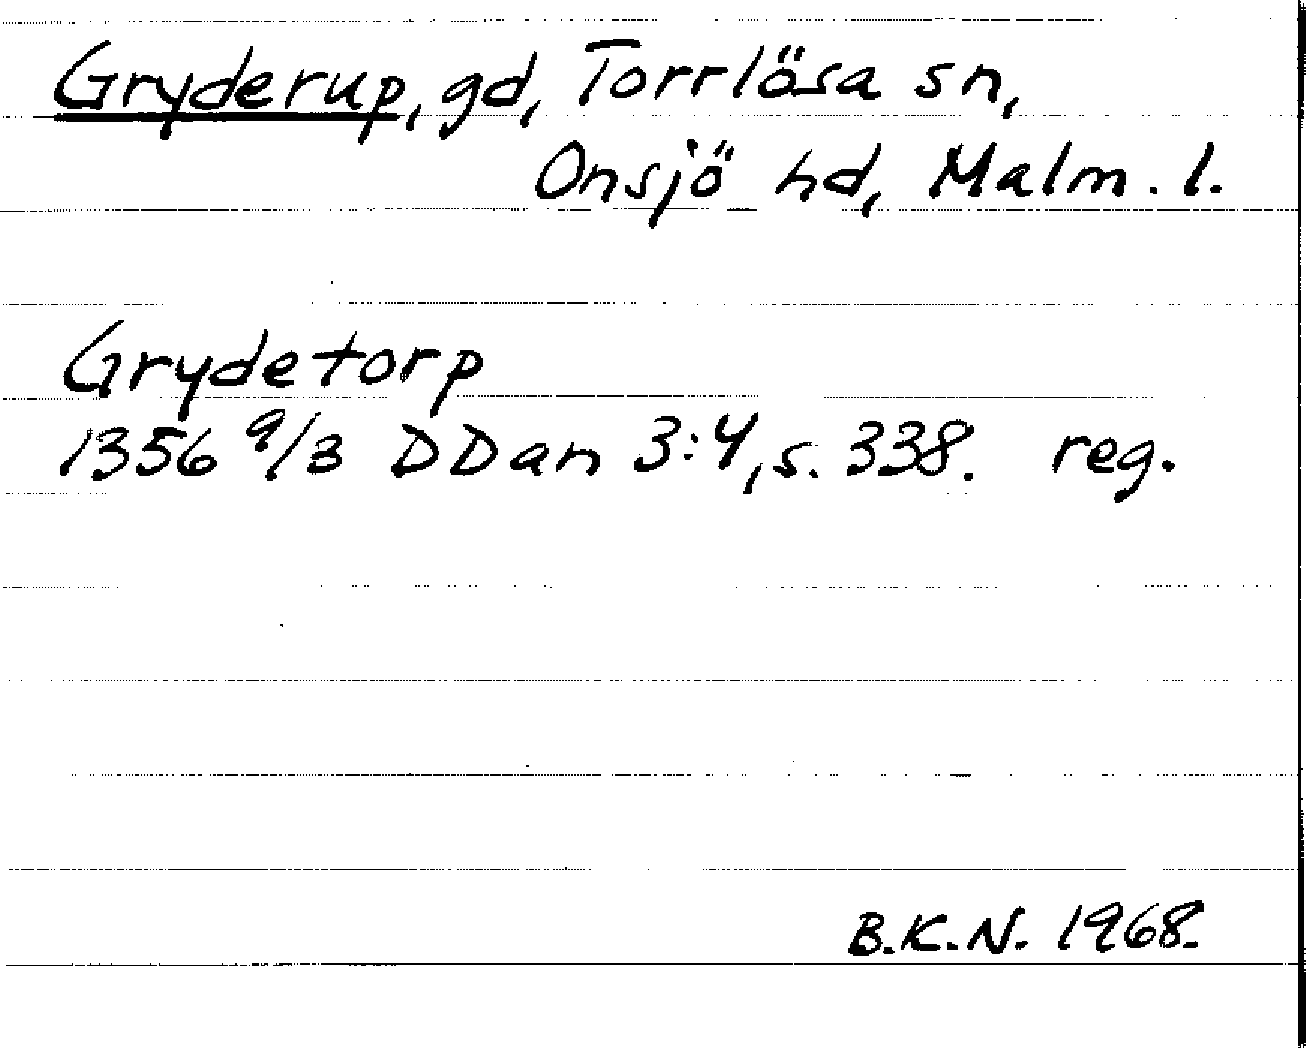 Gryderup, gd, Torrlösa sn,
Onsjö hd, Malm. l.
Grydetorp
1356 9/3 DDan 3:4, s. 338. reg.
B.K.N. 1968.